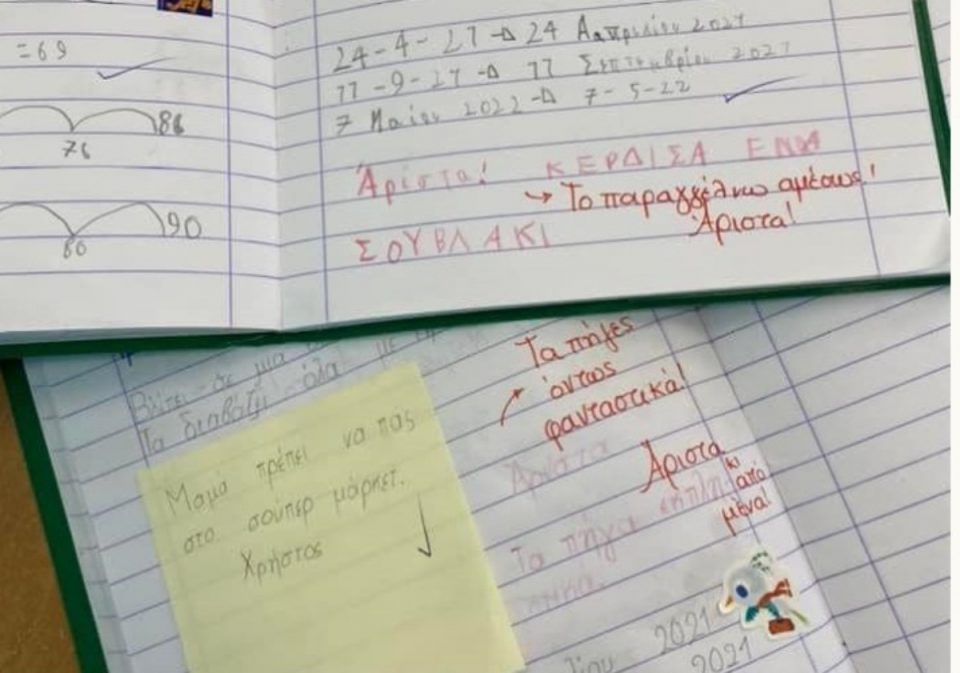 =69
86
76
90
80
24-4-27 → 24 Ααπριλίου 2027
17-9-27 → 17 Σεπτεμβρίου 2027
7 Μαίου 2022 → 7-5-22
Άριστα! ΚΕΡΔΙΣΑ ΕΝΑ
→ Το παραγγέλνω αμέσως!
Άριστα!
ΣΟΥΒΛΑΚΙ
σε μια
Τα διαβάζει όλα με
Μαμά πρέπει να πας
στο σούπερ μάρκετ.
Χρήστος
Τα πήγες
όντως
φανταστικά!
Άριστα
Άριστα
κι από
μένα!
Τα πήγα
2021
2021